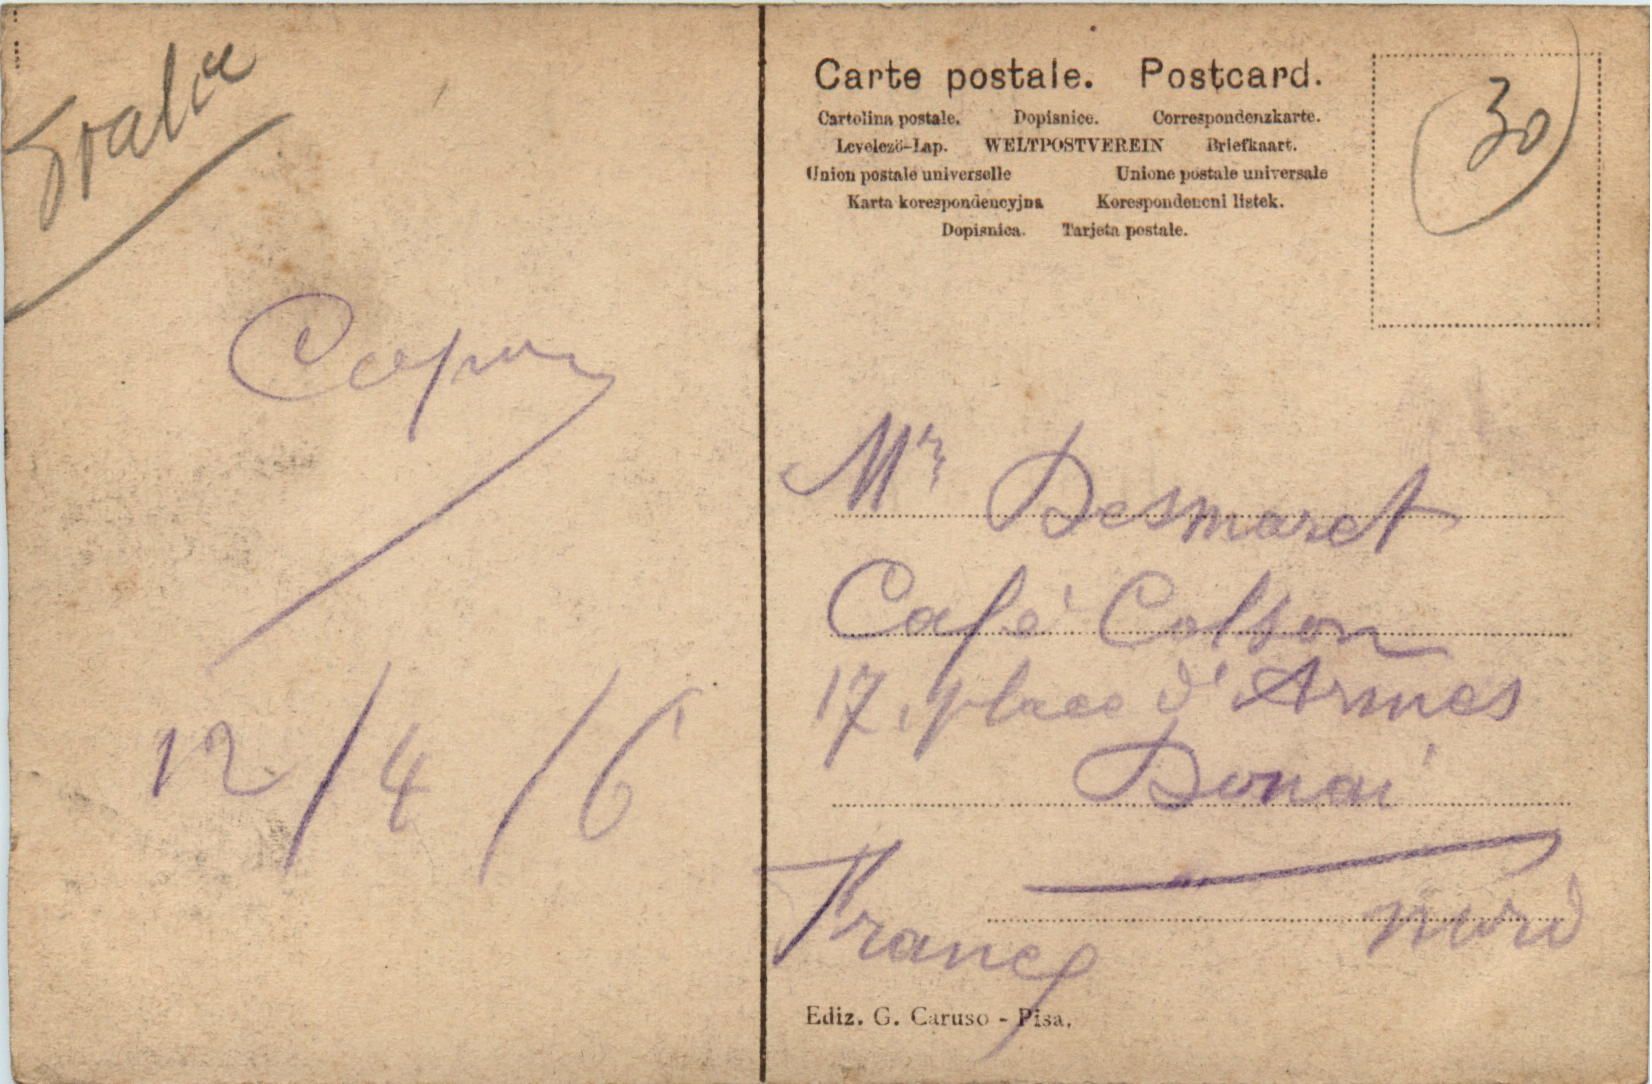 Italie
12/4/6
Carte postale. Postcard.
Cartolina postale. Dopisnice. Correspondenzkarte.
Levelezö-Lap. WELTPOSTVEREIN Briefkaart.
Union postale universelle Unione postale universale
Karta korespondencyjna Korespondencni listek.
Dopisnica. Tarjeta postale.
30
Mr Desmaret
Café Colson
17, place d'Armes
Douai
France nord
Ediz. G. Caruso - Pisa.